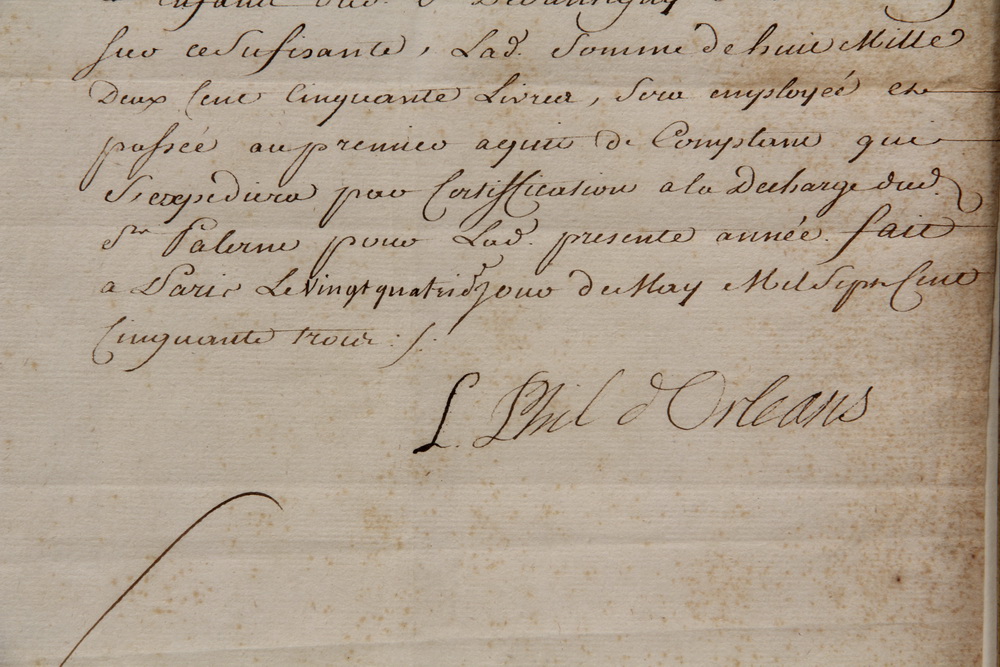 sur ce Sufisante, Lad. Somme de huit Mille
Deux Cent Cinquante Livres, Sera employée et
passée au premier aquit de Comptant qui
S'expediera par Certiffication a la Decharge dud.
Sr. Palerne pour Lad. presente année. fait
a Paris Le vingt quatrie jour de May Mil Sept Cent
Cinquante trois ./.
L. Phil d'Orleans